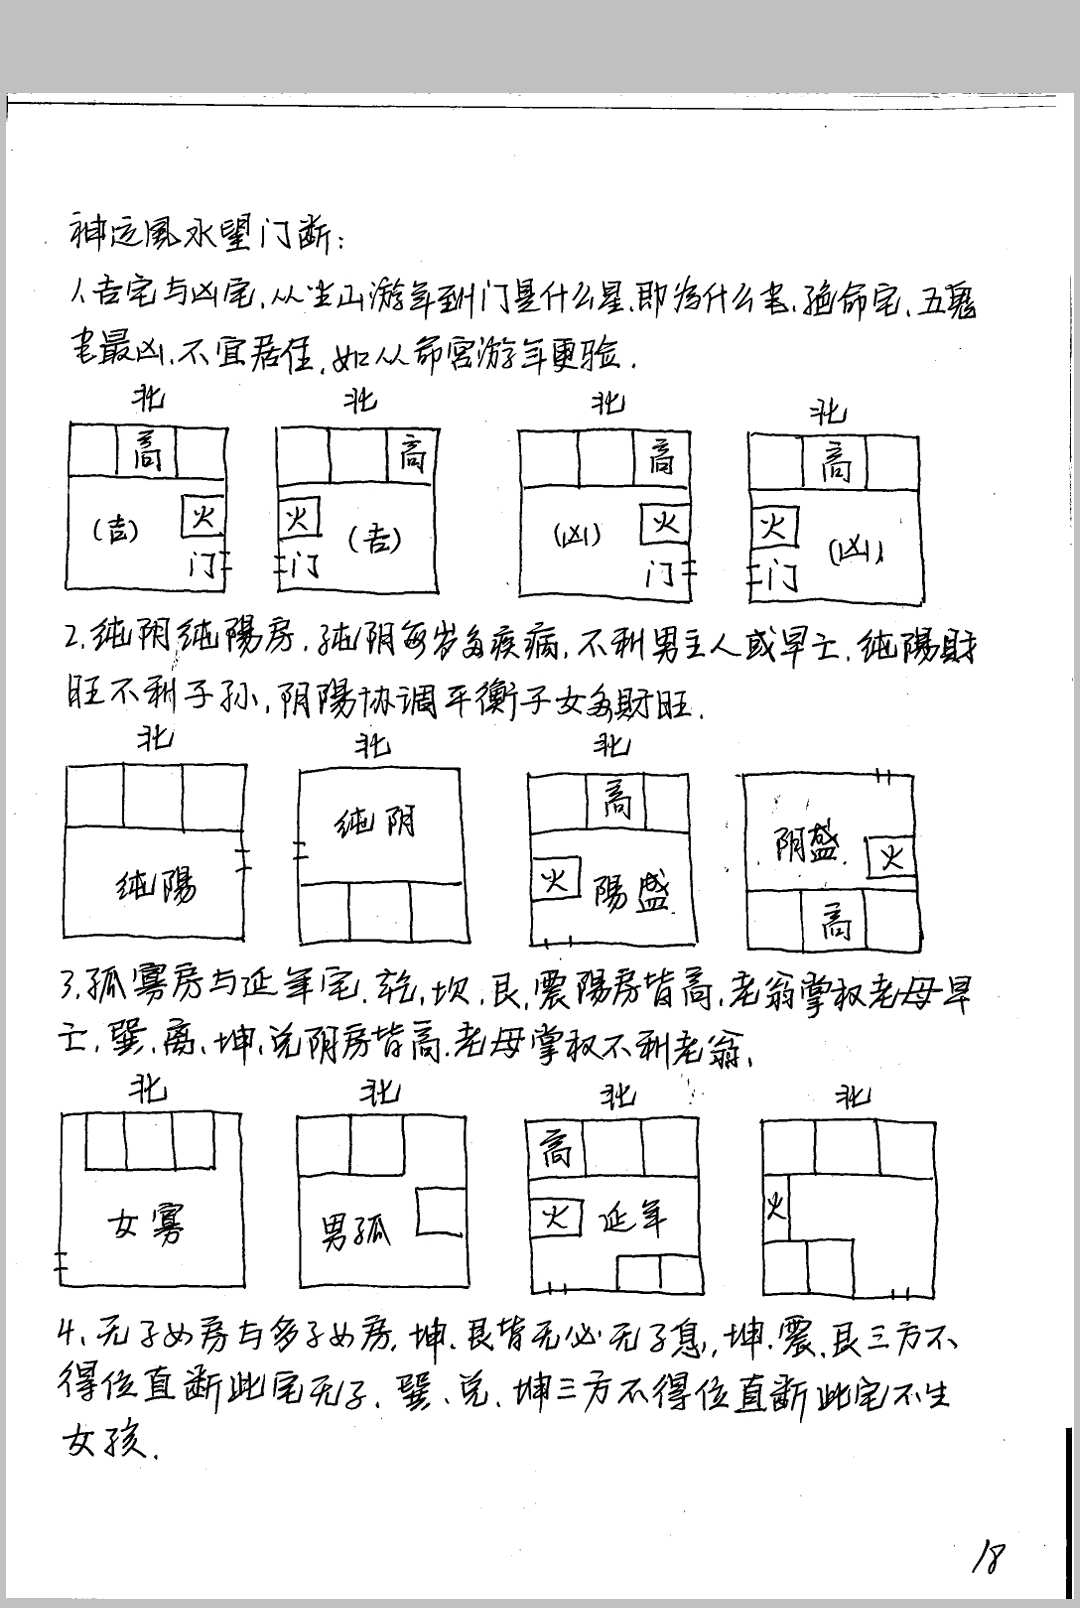 神定風水望门断:
1、吉宅与凶宅,从坐山游年到门是什么星,即为什么宅,绝命宅,五鬼
宅最凶,不宜居住,如从命宫游年更验.
北 北 北 北
高 高 高 高
火 火 火 火
(吉) (吉) (凶) (凶)
门 门 门 门
2.纯阴纯陽房,纯阴每岁多疾病,不利男主人或早亡,纯陽財
旺不利子孙,阴陽协调平衡子女多財旺.
北 北 北
纯陽 纯阴 高 火 陽盛 阴盛 火 高
3.孤寡房与延年宅,乾,坎,艮,震陽房皆高,老翁掌权老母早
亡,巽、离、坤、兑阴房皆高,老母掌权不利老翁,
北 北 北 北
女寡 男孤 高 火 延年 火
4、无子女房与多子女房,坤、艮皆无必无子息,坤、震、艮三方不
得位直断此宅无子,巽、兑、坤三方不得位直断此宅不生
女孩.
18